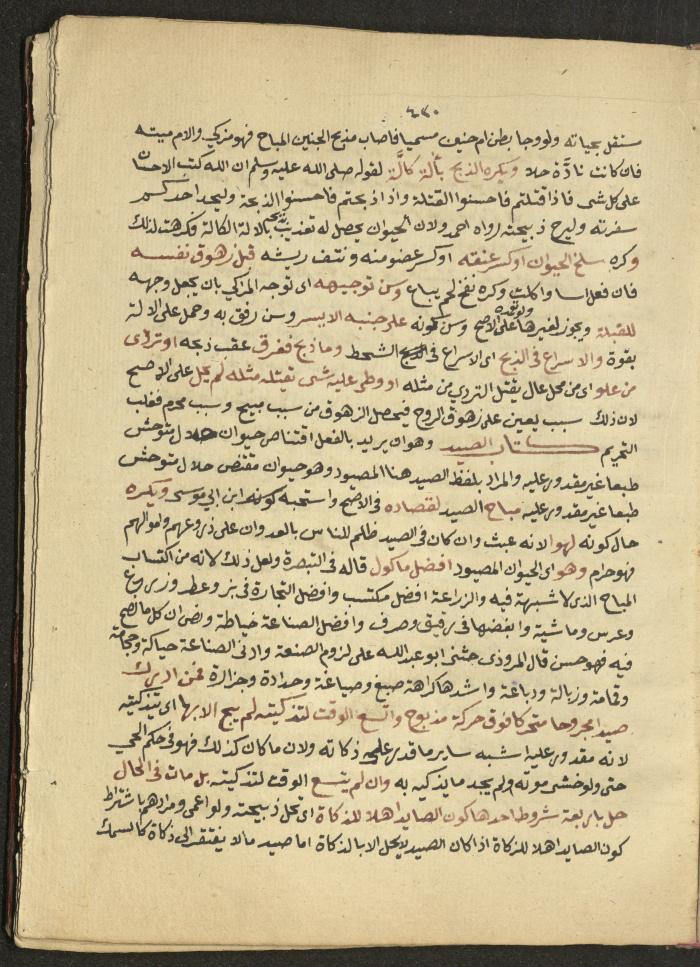 ٤٢٠
مستقل بحياته ولو وجا بطن ام جنين مسميا فاصاب مذبح الجنين المباح فهو مزكي والام ميته
فان كانت نادَّة حلا ويكره الذبح بآلة كالَّة لقوله صلى الله عليه وسلم ان الله كتب الاحسان
على كل شي فاذا قتلتم فاحسنوا القتلة واذا ذبحتم فاحسنوا الذبحة وليحد احدكم
سفرته وليرح ذبيحته رواه احمد ولان الحيوان يحصل له تعذيب بالالة الكالة فكرهت لذلك
وكره سلخ الحيوان او كسر عنقه او كسر عضو منه ونتف ريشه قبل زهوق نفسه
فان فعل اسا واكلت وكره نفخ لحم يباع وسن توجيهه اى توجه المزكي بان يجعل وجهه
للقبلة ويجوز لغيرها على الاصح وسن كونه على جنبه الايسر وسن رفق به وحمل على الالة
بقوة والاسراع في الذبح اى الاسراع في الشحط وما ذبح فغرق عقب ذبحه او تردى
من علو اى من محل عال يقتل التردي من مثله او وطى عليه شى يقتله مثله لم يحل على الاصح
لان ذلك سبب يعين على زهوق الروح فيحصل الزهوق من سبب مبيح وسبب محرم فغلب
التحريم كتاب الصيد وهو ان يريد بالفعل اقتناص حيوان حلال متوحش
طبعا غير مقدور عليه والمراد بلفظ الصيد هنا المصيود وهو حيوان مقتنص حلال متوحش
طبعا غير مقدور عليه مباح الصيد لقصاده في الاصح واستحبه كونه ابن ابي موسى ويكره
حال كونه لهوا لانه عبث وان كان في الصيد ظلم للناس بالعدوان على زروعهم واموالهم
فهو حرام وهو اى الحيوان المصيود افضل ماكول قاله في التبصرة ولعل ذلك لانه من اكتساب
المباح الذى لا شبهة فيه والزراعة افضل مكتسب وافضل التجارة في بز وعطر وزروع
وغرس وماشية وابغضها في رقيق وصرف وافضل الصناعة خياطة ونص ان كل ما نصح
فيه فهو حسن قال المروذى حثنى ابو عبدالله على لزوم الصنعة وادنى الصناعة حياكة وحجامة
وقمامة وزبالة ودباغة واشدها كراهة صبغ وصياغة وحدادة وجزارة فمن ادرك
صيدا مجروحا متحركا فوق حركة مذبوح واتسع الوقت لتذكيته لم يبح الا بها اى بتذكيته
لانه مقدور عليه اشبه ساير ما قدر على ذكاته ولان ما كان كذلك فهو في حكم الحي
حتى ولو خشى موته ولم يجد ما يذكيه به وان لم يتسع الوقت لتذكيته بل مات في الحال
حل باربعة شروط احدها كون الصايد اهلا للذكاة اى تحل ذبيحته ولو اعمى ومرادهم باشتراط
كون الصايد اهلا للزكاة اذا كان الصيد لا يحل الا بالذكاة اما صيد مالا يفتقر الى ذكاة كالسمك